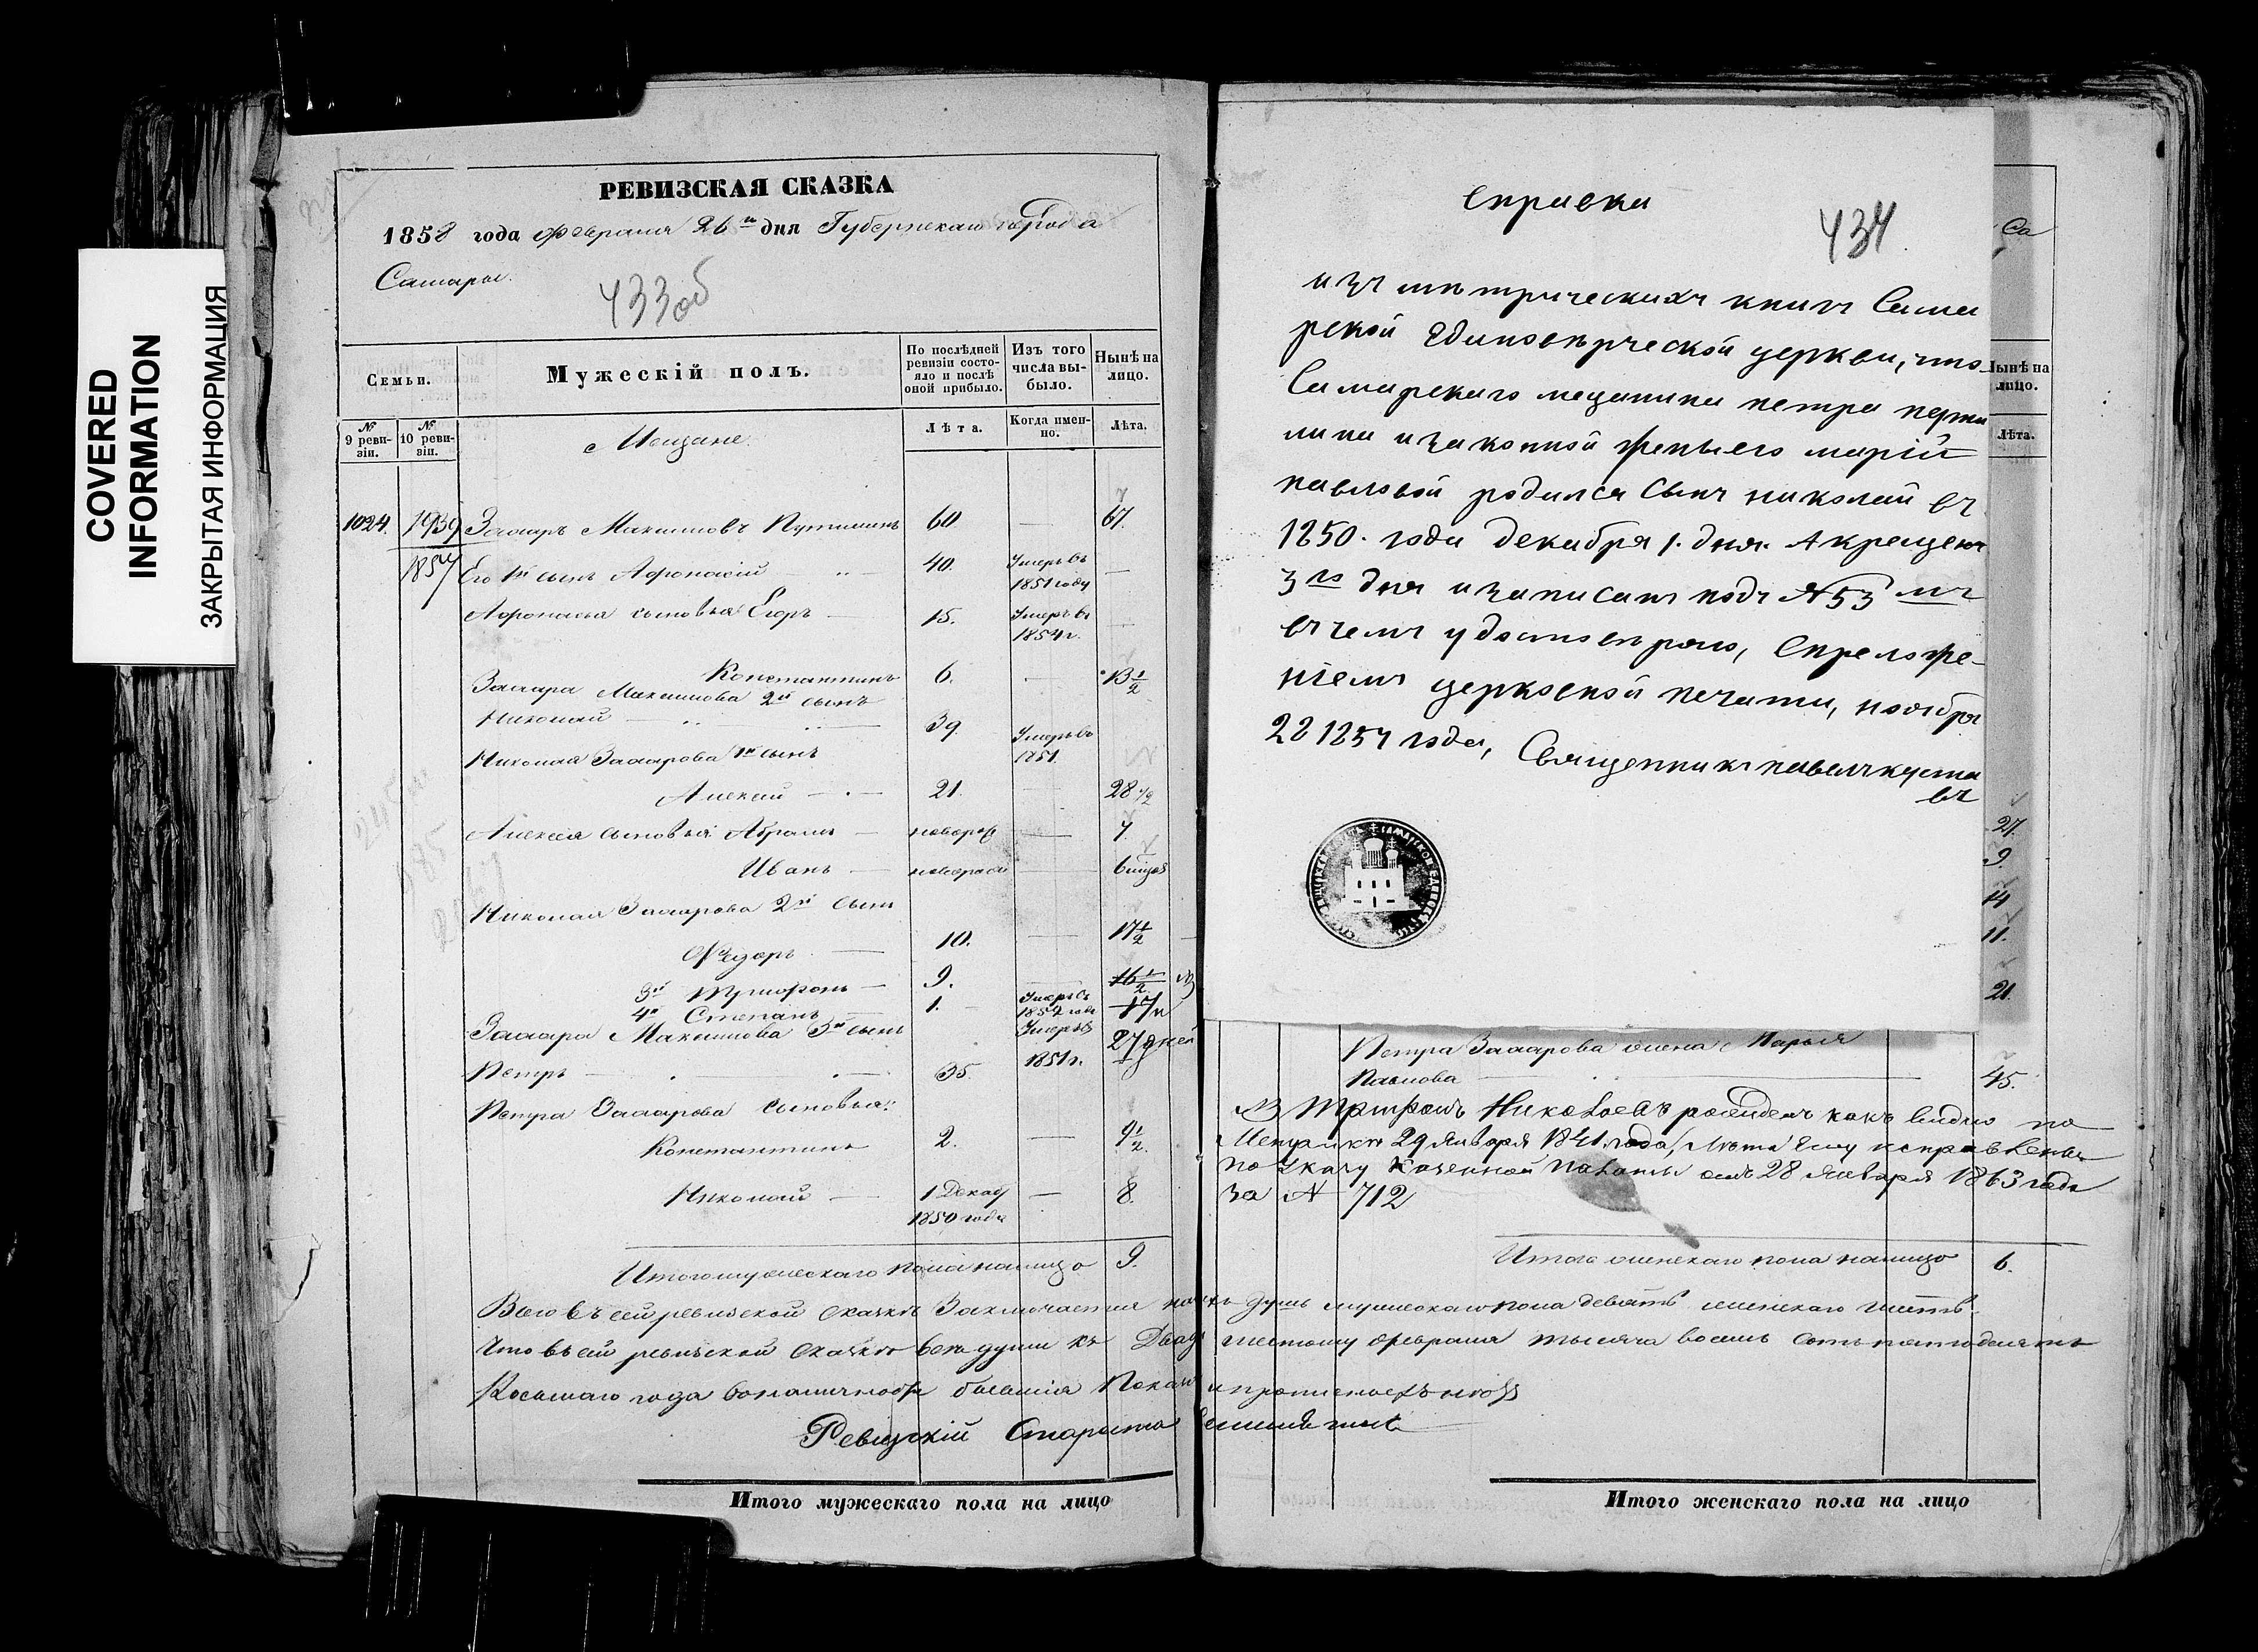 COVERED
INFORMATION
ЗАКРЫТАЯ ИНФОРМАЦИЯ
РЕВИЗСКАЯ СКАЗКА
1858 года февраля 26го дня Губернскаго города
Самары.
433об
Семьи.
Мужескій полъ.
По послѣдней ревизіи состояло и послѣ оной прибыло.
Изъ того числа выбыло.
Нынѣ на лицо.
№ 9 ревизіи.
№ 10 ревизіи.
Мещане.
Лѣта.
Когда именно.
Лѣта.
1024. 1939 Захаръ Максимовъ 60. — 67.
1857 Его 1й сынъ Афонасій 40. Умеръ въ 1851 году —
Афонасья сыновья Егоръ — 15. Умеръ въ 1854 г. —
Константинъ 6. — 13 1/2
Захара Максимова 2й сынъ
Николай 39. Умеръ въ 1851.
Николая Захарова 1й сынъ
Алексей 21. — 28 1/2
Алексея сыновья Абрамъ — новорож — 7.
Иванъ — новорож — 6 мцов
Николая Захарова 2й сынъ
Федоръ — 10. — 17 1/2
3й Трифонъ — 9. — 16 1/2
4й Степанъ 1. Умеръ въ 1852 году 17 и
Захара Максимова 3й сынъ Умеръ въ 27 дней
Петръ 35. 1851 г.
Петра Захарова сыновья:
Константинъ 2. — 9 1/2.
Николай — 1 Декаб 1850 года — 8.
Итого мужескаго пола налицо 9.
Всего въ сей ревизской сказкѣ Заключается душъ мужескаго пола девять женскаго шесть.
Что въ сей ревизской сказкѣ все души къ шестому февраля тысяча восемь сотъ пятьдесятъ
Восьмаго года
Ревизскій Староста
Итого мужескаго пола на лицо
Справка
434
изъ метрическихъ книгъ Сама
рской Единоверческой церкви, что
Самарскаго мещанина петра
и законной жены его маріи
павловой родился сынъ николай въ
1850. года декабря 1. дня. А крещенъ
3го дня и записанъ подъ №53 мъ
въ чемъ удостоверяю, Съ преложе-
ніемъ церковной печати, ноября
22 1857 года, Священникъ павелъ
въ
Са
Нынѣ на лицо.
Лѣта.
27.
9.
14
11.
21.
Петра Захарова жена Марья
Павлова 45.
Трифонъ Николаевъ рожденъ какъ видно по
Метрикѣ 29 Января 1841 года, Лѣта Ему исправлены
по Указу Казенной Палаты отъ 28 Января 1863 года
за № 712
Итого женскаго пола налицо 6.
Итого женскаго пола на лицо